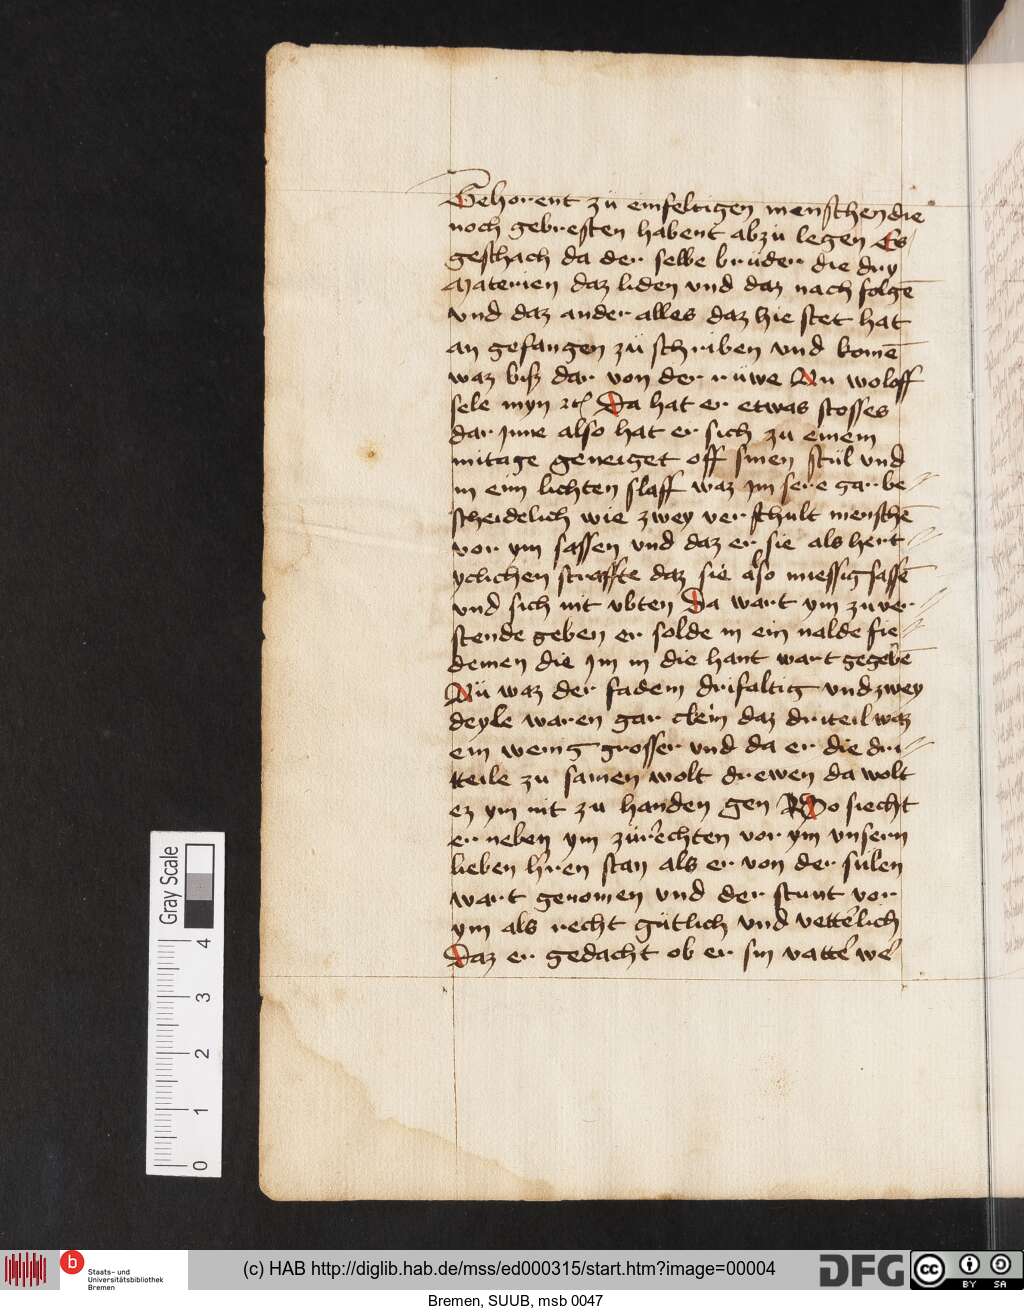 Gehorent zü einfeltigen menschen die
noch gebresten habent abzü legen Es
geschach da der selbe brüder die dry
Materien daz liden vnd daz nach folgē
vnd daz ander alles daz hie stet hat
an gefangen zü schriben vnd komē
waz biß dar von der rüwe Nu woloff
sele myn Da hat er etwas stosses
dar Inne also hat er sich zu einem
mitage geneiget off sinen stül vnd
in eim lichten slaff waz Im sere gar be
scheidelich wie zwey verschult menschē
vor ym sassen vnd daz er sie als hert
yclichen straffte daz sie also miessig sassē
vnd sich nit vbten Da wart ym zu ver
stende geben er solde in ein nalde fie
demen die Im in die hant wart gegebē
Nü waz der fadem drifaltig vnd zwey
deyle waren gar clein daz driteil waz
ein wenig grosser vnd da er die dri
tteile zu samen wolt drewen da wolt
ez ym nit zu handen gen So siecht
er neben ym zürechten vor ym vnsern
lieben h'ren stan als er von der sulen
wart genomen vnd der stunt vor
ym als recht gütlich vnd vetterlich
Daz er gedacht ob er sin vatter wer
Gray Scale
4
3
2
1
0
b
Staats- und
Universitätsbibliothek
Bremen
(c) HAB http://diglib.hab.de/mss/ed000315/start.htm?image=00004
DFG
cc
BY SA
Bremen, SUUB, msb 0047